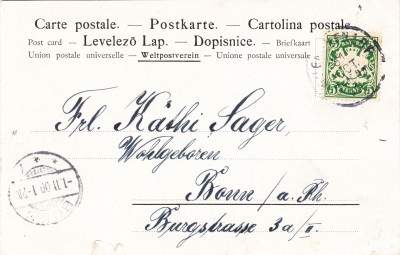 Carte postale. — Postkarte. — Cartolina postale.
Post card — Levelezŏ Lap. — Dopisnice. — Briefkaart
Union postale universelle — Weltpostverein — Unione postale universale
BAYERN
5 5
PFENNIG
OCT
Frl. Käthi Sager,
Wohlgeboren
Bonn /a. Rh.
Burgstrasse 3a/II.
1.11.00.1-2N